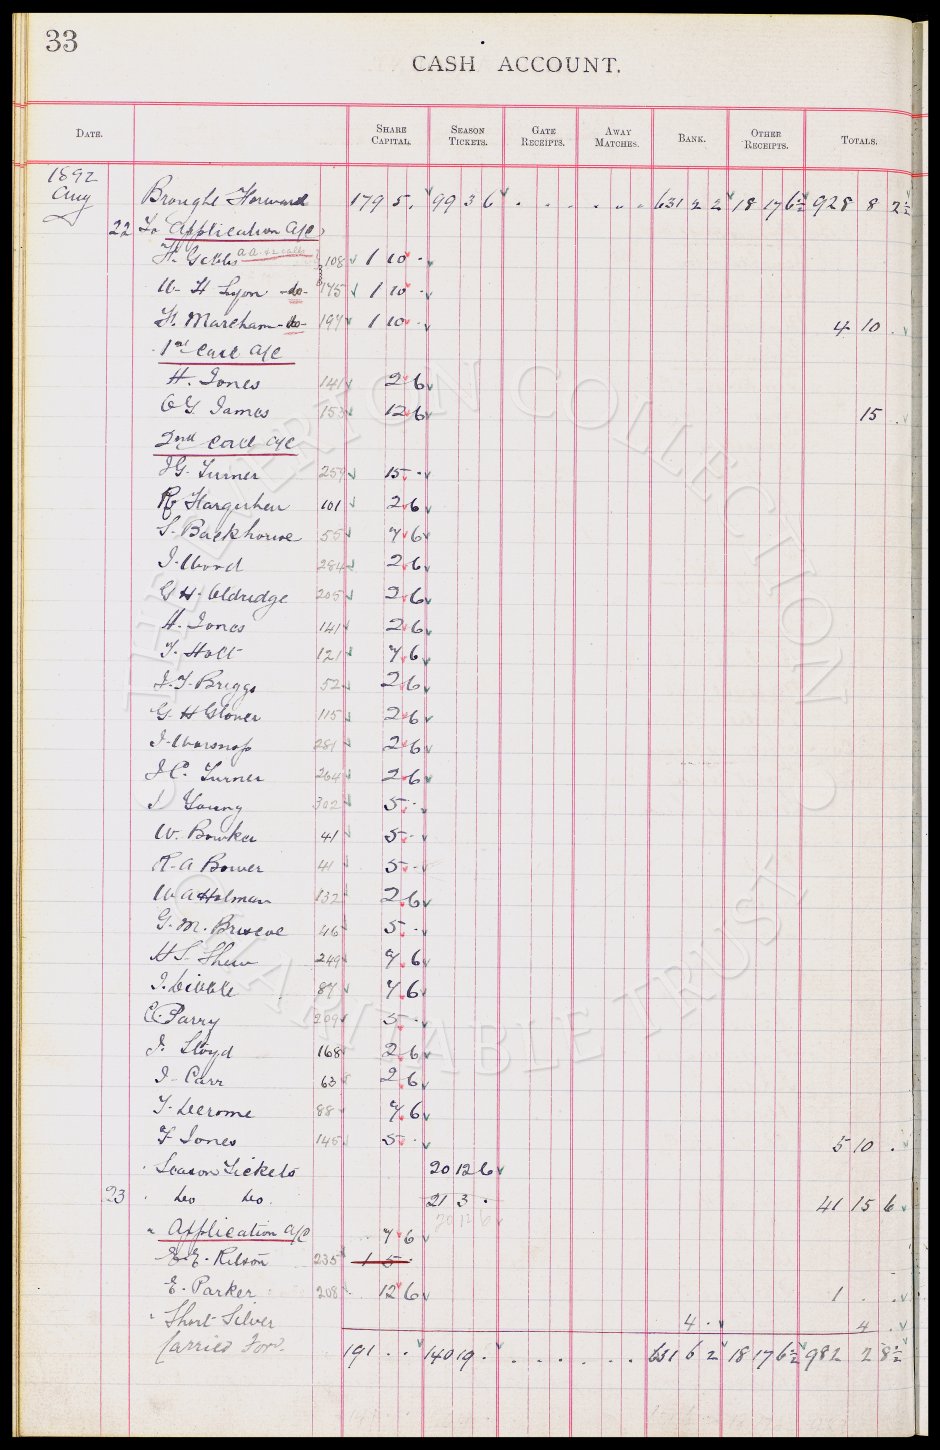 33
CASH ACCOUNT.
DATE. SHARE CAPITAL. SEASON TICKETS. GATE RECEIPTS. AWAY MATCHES. BANK. OTHER RECEIPTS. TOTALS.
1892
Aug Brought Forward 179 5 . 99 3 6 . . . . . . 631 2 2 18 17 6½ 928 8 2½
22 To Application a/c
H. 108 1 10 .
W. H Lyon -do- 175 1 10 .
H. Marcham -do- 197 1 10 . 4 10 .
1st Call a/c
H. Jones 141 2 6
O G. James 153 12 6 15 .
2nd Call a/c
J G. Turner 259 15 .
R Hargreher 101 2 6
S. Backhouse 55 7 6
J. Wood 284 2 6
G H. Aldridge 205 2 6
H. Jones 141 2 6
T. Holt 121 7 6
J. T. Briggs 52 2 6
G. H Glover 115 2 6
J. Worsnop 281 2 6
J C. Turner 264 2 6
J Young 302 5 .
W. Bowker 41 5 .
R. A Bower 41 5 .
W A Holman 132 2 6
G. M. Briscoe 46 5 .
H S. Shaw 249 7 6
J. Dibble 87 7 6
C. Parry 209 5 .
J. Lloyd 168 2 6
J. Carr 63 2 6
T. Decrome 88 7 6
F Jones 145 5 . 5 10 .
Season Tickets 20 12 6
23 Do Do. 21 3 . 41 15 6
20 12 6
" Application a/c 7 6
E. E. Kitson 235 1 5 .
E. Parker 208 12 6 1 . .
" Short Silver 4 . 4 .
Carried Forwd. 191 . . 140 19 . . . . . . . 631 6 2 18 17 6½ 982 2 8½
THE EVERTON COLLECTION
CHARITABLE TRUST